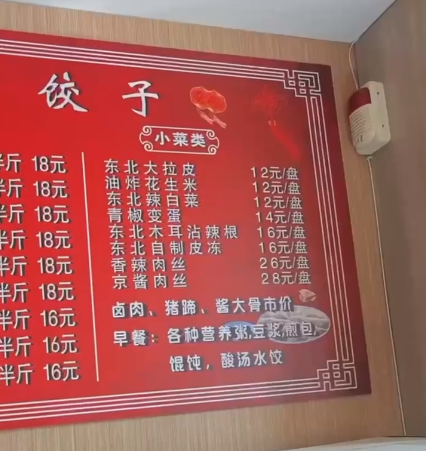 饺子
小菜类
半斤 18元
半斤 18元
半斤 18元
半斤 18元
半斤 18元
半斤 18元
半斤 16元
半斤 16元
半斤 16元
东北大拉皮 12元/盘
油炸花生米 12元/盘
东北辣白菜 12元/盘
青椒变蛋 14元/盘
东北木耳沾辣根 16元/盘
东北自制皮冻 16元/盘
香辣肉丝 26元/盘
京酱肉丝 28元/盘
卤肉、猪蹄、酱大骨市价
早餐：各种营养粥,豆浆,煎包,
馄饨，酸汤水饺